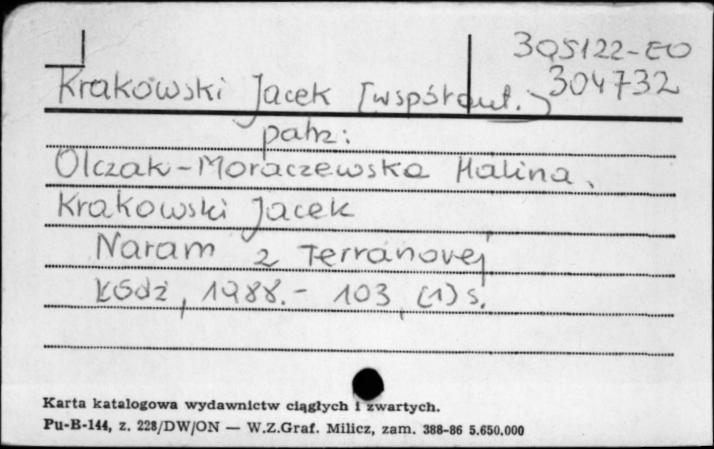 305122-EO
Krakowski Jacek [współaut.]
304732
patrz:
Olczak-Moraczewska Halina,
Krakowski Jacek
Naram z Terranovej
Łódź, 1988.- 103, (1) s.
Karta katalogowa wydawnictw ciągłych i zwartych.
Pu-B-144, z. 228/DW/ON — W.Z.Graf. Milicz, zam. 388-86 5.650.000